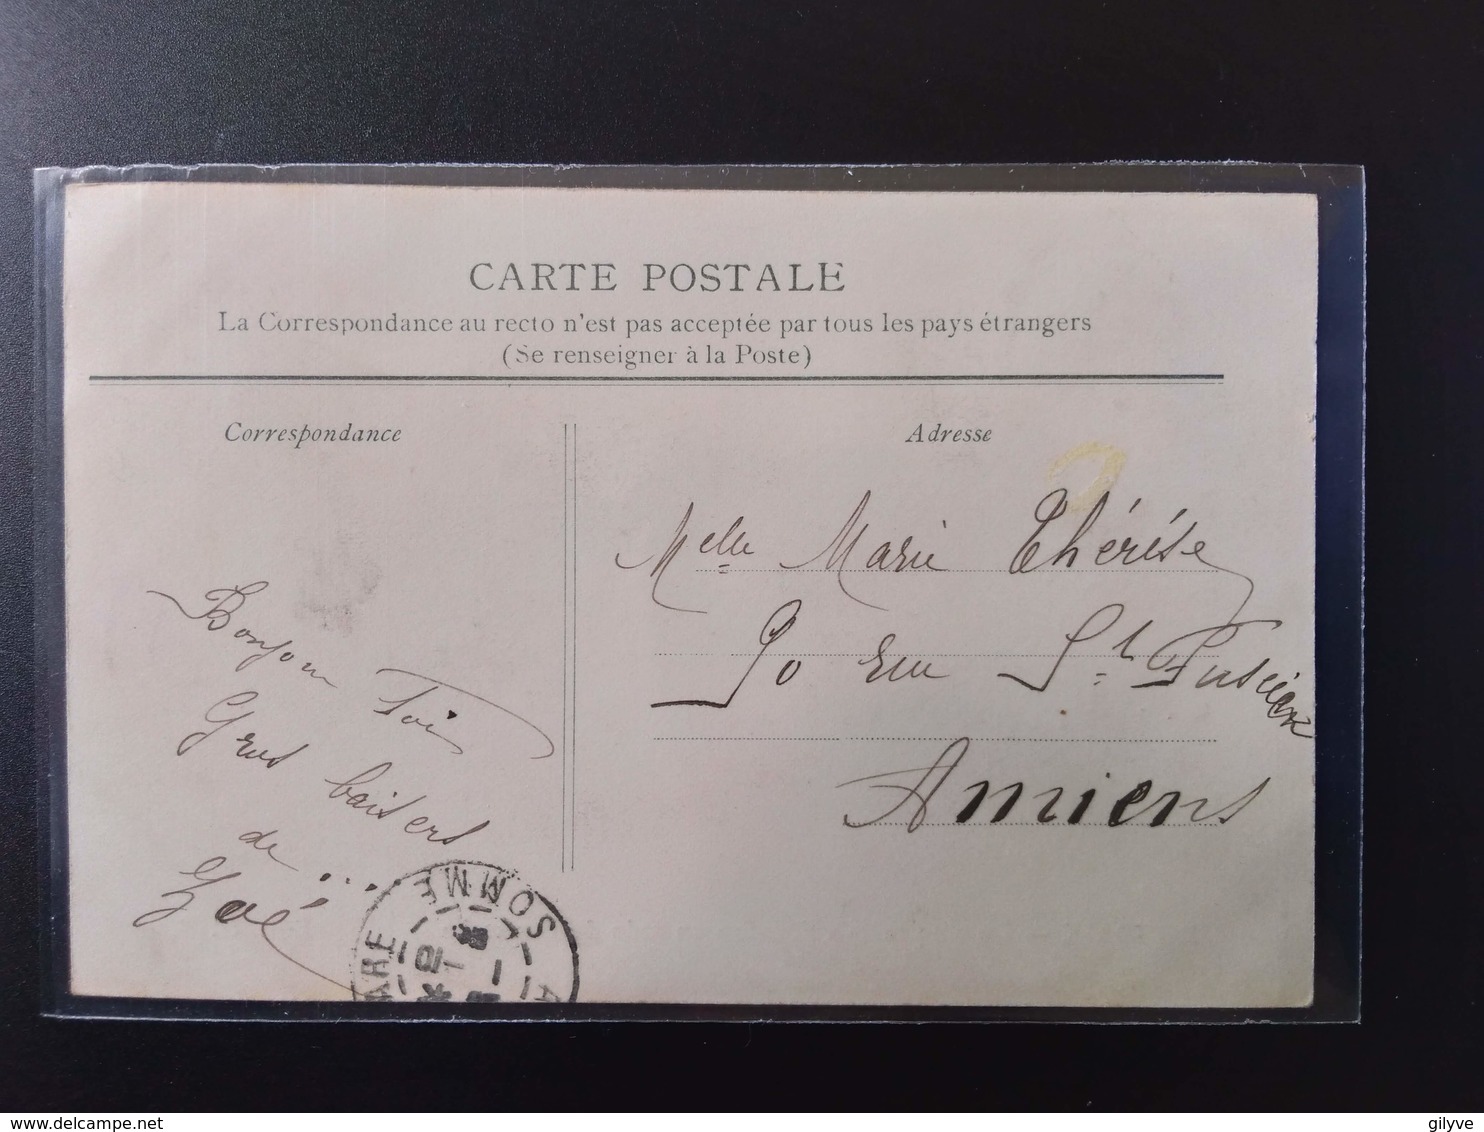 CARTE POSTALE
La Correspondance au recto n'est pas acceptée par tous les pays étrangers
(Se renseigner à la Poste)
Correspondance
Bonjour Toi
Gros baisers
de ...
Zoé
Adresse
Melle Marie Thérèse
90 rue St Fuscien
Amiens
SOMME
ARE
A
delcampe.net
gilyve